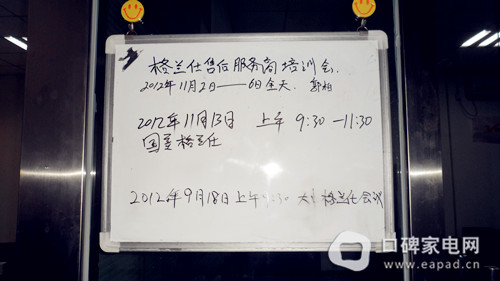 格兰仕售后服务商培训会.
2012年11月2日——6日全天.
2012年11月13日 上午 9:30-11:30
国美格兰仕
2012年9月18日上午9:30 格兰仕会议
口碑家电网
www.eapad.cn